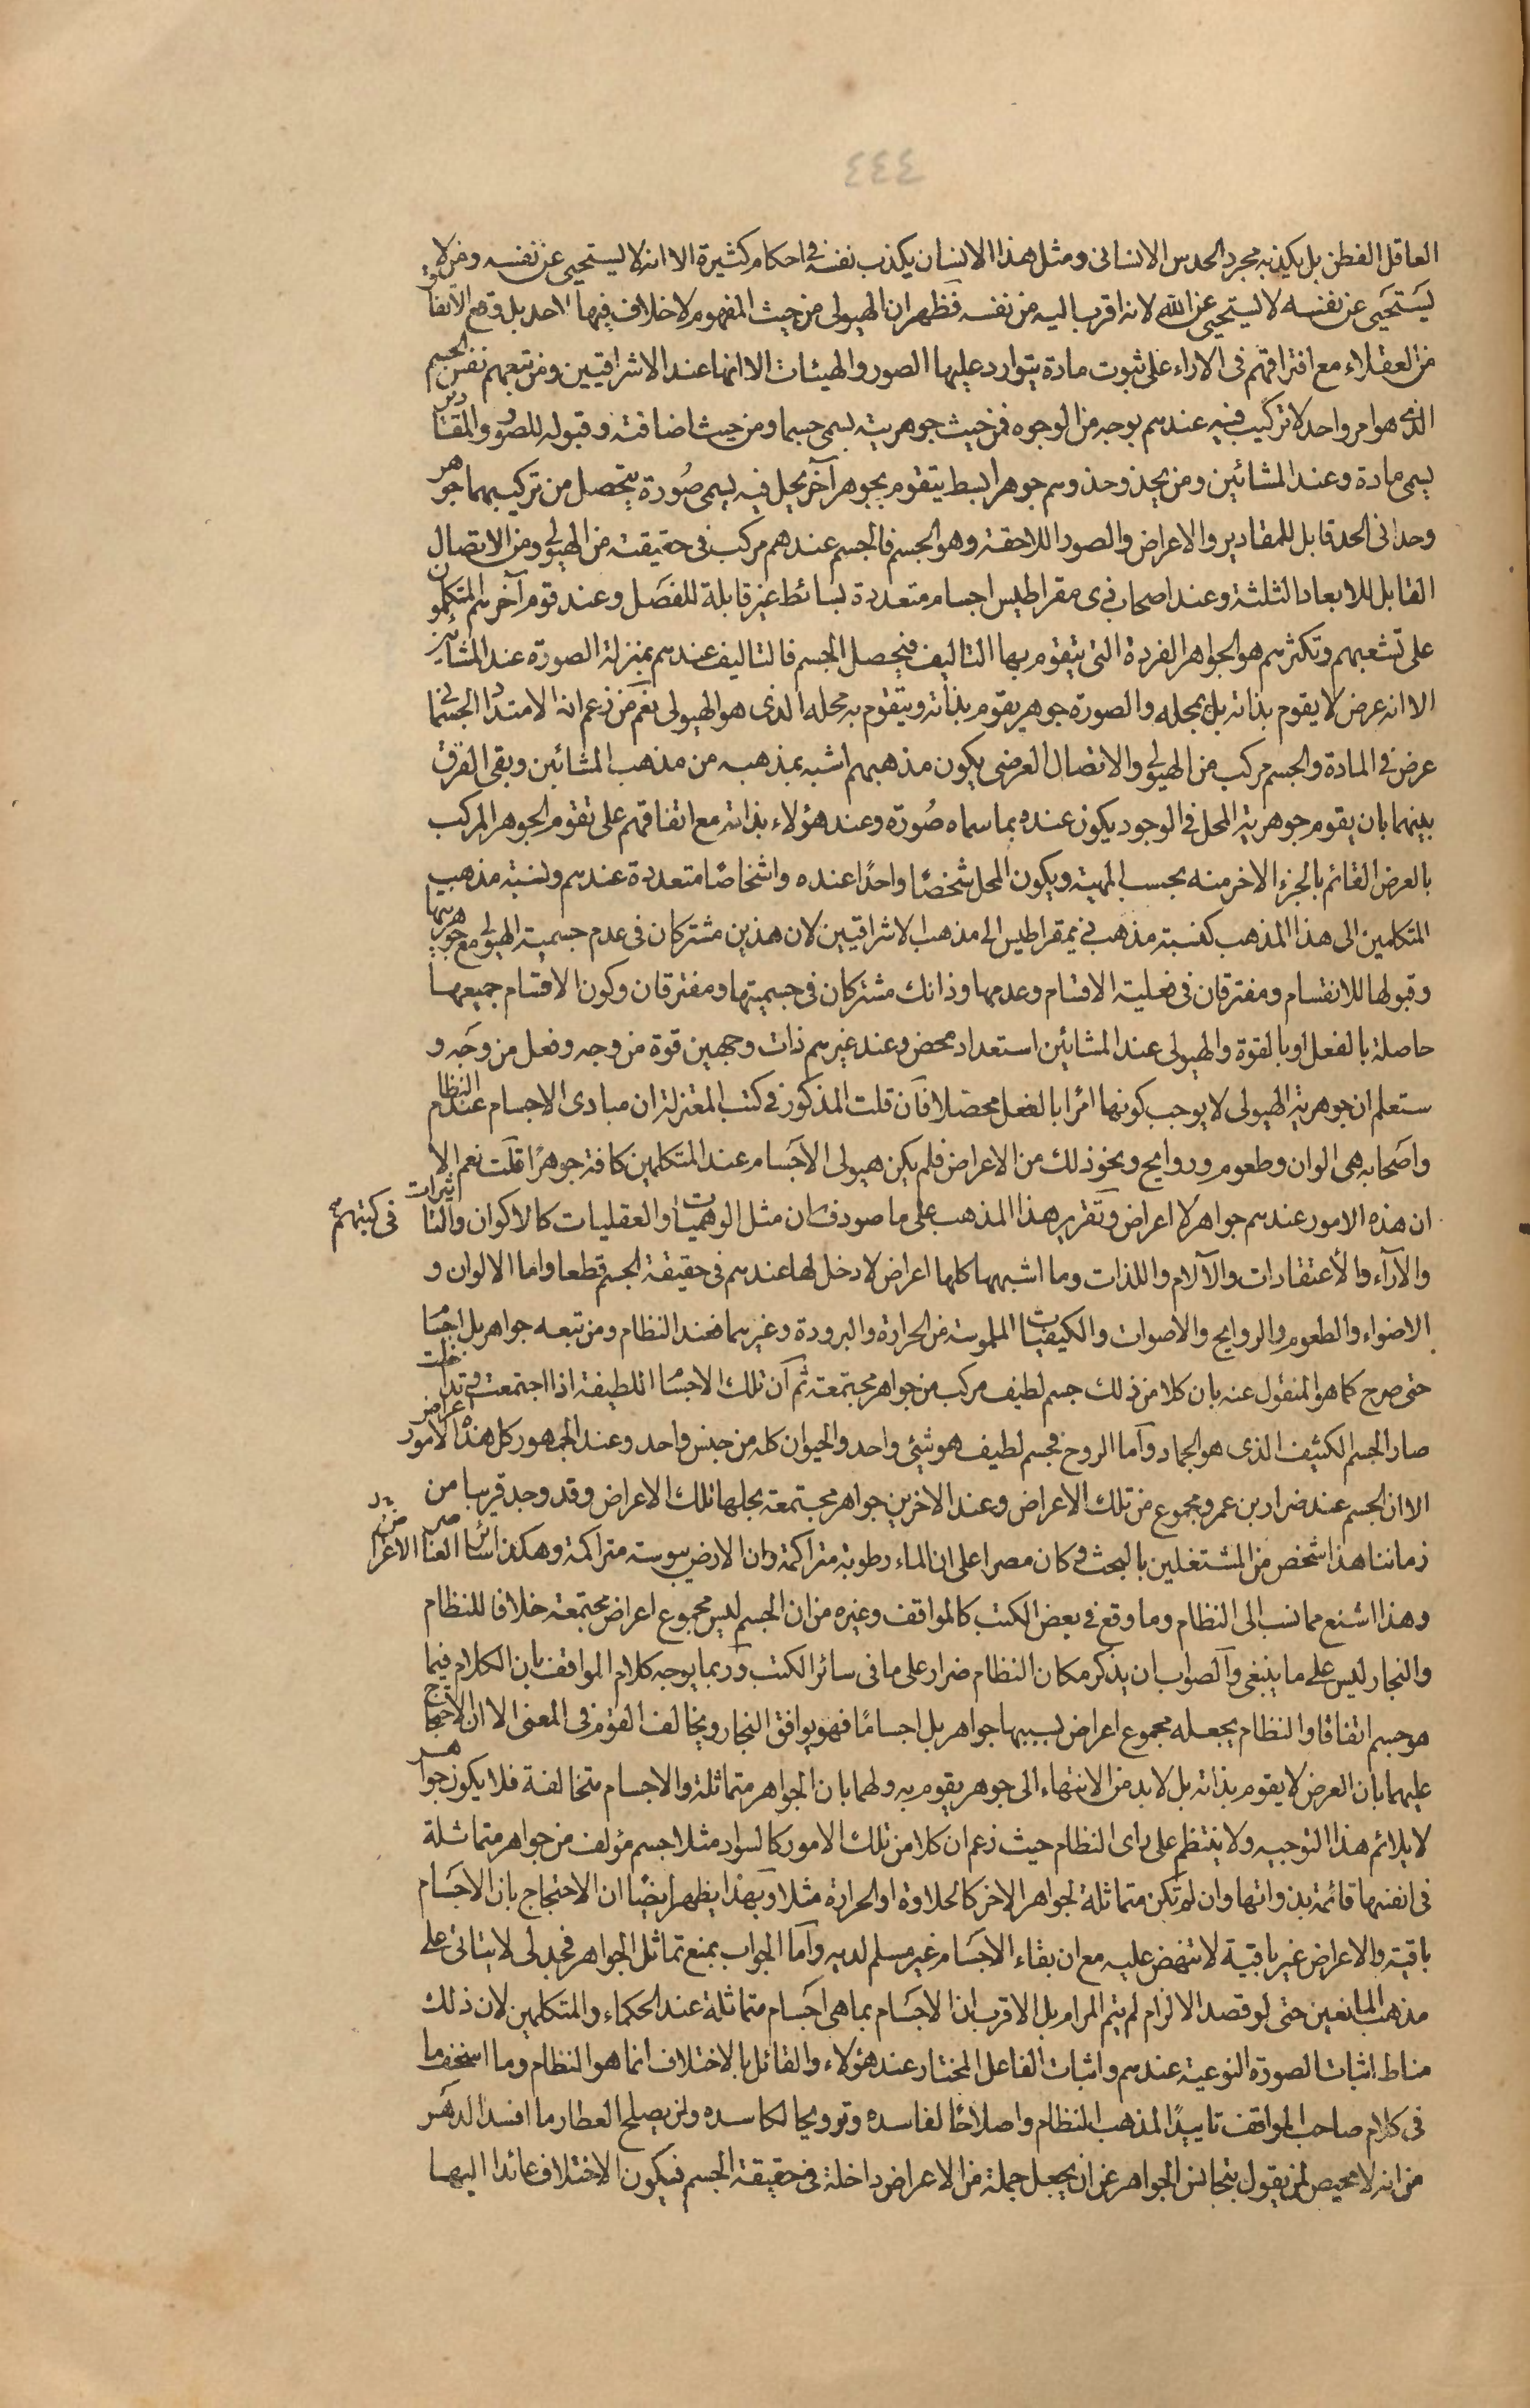 ٤٤٤
العاقل الفطن بل يكذبه مجرد الحدس الانسانى ومثل هذا الانسان يكذب نفسه فى احكام كثيرة الا انه لا يستحيى عن نفسه ومن لا
يستحيى عن نفسه لا يستحيى عن الله لانه اقرب اليه من نفسه فظهر ان الهيولى من حيث المفهوم لا خلاف فيها لاحد بل وقع الاتفاق
من العقلاء مع افتراقهم فى الاراء على ثبوت مادة يتوارد عليها الصور والهيئات الا انها عند الاشراقيين ومن تبعهم نفس الجسم
الذى هو امر واحد لا تركيب فيه عندهم بوجه من الوجوه فمن حيث جوهريته يسمى جسما ومن حيث اضافته وقبوله للصور والمقادير
يسمى مادة وعند المشائين ومن يحذو حذوهم جوهر ابسط يتقوم بجوهر آخر يحل فيه يسمى صورة يتحصل من تركيبهما جوهر
وحدانى الحد قابل للمقادير والاعراض والصور اللاحقة وهو الجسم فالجسم عندهم مركب فى حقيقته من الهيولى ومن الاتصال
القابل للابعاد الثلثة وعند اصحاب ذى مقراطيس اجسام متعددة بسائط غير قابلة للفصل وعند قوم آخر هم المتكلمون
على تشعبهم وتكثرهم هو الجواهر الفردة التى يتقوم بها التاليف فيحصل الجسم فالتاليف عندهم بمنزلة الصورة عند المشائين
الا انه عرض لا يقوم بذاته بل بمحله والصورة جوهر يقوم بذاته ويتقوم به محله الذى هو الهيولى نعم من زعم ان الامتداد الجسمانى
عرض فى المادة والجسم مركب من الهيولى والاتصال العرضى يكون مذهبهم اشبه بمذهبه من مذهب المشائين وبقى الفرق
بينهما بان يقوم جوهرية المحل فى الوجود يكون عنده بما سماه صورة وعند هؤلاء بذاته مع اتفاقهم على تقوم الجوهر المركب
بالعرض القائم بالجزء الاخر منه بحسب المهية ويكون المحل شخصًا واحدًا عنده واشخاصًا متعددة عندهم ونسبة مذهب
المتكلمين الى هذا المذهب كنسبة مذهب ذيمقراطيس الى مذهب الاشراقيين لان هذين مشتركان فى عدم جسمية الهيولى مع جوهريتها
وقبولها للانقسام ومفترقان فى فعلية الاقسام وعدمها وذانك مشتركان فى جسميتها ومفترقان وكون الاقسام جميعها
حاصلة بالفعل او بالقوة والهيولى عند المشائين استعداد محض وعند غيرهم ذات وجهين قوة من وجه وفعل من وجه و
ستعلم ان جوهرية الهيولى لا يوجب كونها امرًا بالفعل محصلا فان قلت المذكور فى كتب المعتزلة ان مبادى الاجسام عند النظام
واصحابه هى الوان وطعوم وروايح ونحو ذلك من الاعراض فلم يكن هيولى الاجسام عند المتكلمين كافة جوهرًا قلت نعم الا
ان هذه الامور عندهم جواهر لا اعراض وتقرير هذا المذهب على ما صودف فى كتبهم ان مثل الوهميات والعقليات كالاكوان والتاثيرات
والآراء والاعتقادات والآلام واللذات وما اشبهها كلها اعراض لا دخل لها عندهم فى حقيقة الجسم قطعا واما الالوان و
الاضواء والطعوم والروايح والاصوات والكيفيات الملموسة من الحرارة والبرودة وغيرهما فعند النظام ومن تبعه جواهر بل اجسام
حتى صرح كما هو المنقول عنه بان كلا من ذلك جسم لطيف مركب من جواهر مجتمعة ثم ان تلك الاجسام اللطيفة اذا اجتمعت وتداخلت
صار الجسم الكثيف الذى هو الجماد واما الروح فجسم لطيف هو شئ واحد والحيوان كله من جنس واحد وعند الجمهور كل هذه الامور اعراض
الا ان الجسم عند ضرار بن عمرو مجموع من تلك الاعراض وعند الاخرين جواهر مجتمعة يحلها تلك الاعراض وقد وجد قريبا من
زماننا هذا شخص من المشتغلين بالبحث كان مصرا على ان الماء رطوبة متراكمة وان الارض يبوسة متراكمة وهكذا سائر العناصر من الاعراض
وهذا اشنع مما نسب الى النظام وما وقع فى بعض الكتب كالمواقف وغيره من ان الجسم ليس مجموع اعراض مجتمعة خلافا للنظام
والنجار ليس على ما ينبغى والصواب ان يذكر مكان النظام ضرار على ما فى سائر الكتب وربما يوجه كلام المواقف بان الكلام فيما
هو جسم اتفاقا والنظام يجعله مجموع اعراض بسببها جواهر بل اجسامًا فهو يوافق النجار ويخالف القوم فى المعنى الا ان الاحتجاج
عليهما بان العرض لا يقوم بذاته بل لا بد من الانتهاء الى جوهر يقوم به ولهما بان الجواهر متماثلة والاجسام متخالفة فلا يكون جواهر
لا يلائم هذا التوجيه ولا ينتظم على راى النظام حيث زعم ان كلا من تلك الامور كالسواد مثلا جسم مؤلف من جواهر متماثلة
فى انفسها قائمة بذواتها وان لم تكن متماثلة لجواهر الاخر كالحلاوة او الحرارة مثلا وبهذا يظهر ايضًا ان الاحتجاج بان الاجسام
باقية والاعراض غير باقية لا تنهض عليه مع ان بقاء الاجسام غير مسلم لديه واما الجواب بمنع تماثل الجواهر فجدلى لا يتاتى على
مذهب المانعين حتى لو قصد الالزام لم يتم المرام بل الاقرب ان الاجسام بما هى اجسام متماثلة عند الحكماء والمتكلمين لان ذلك
مناط اثبات الصورة النوعية عندهم واثبات الفاعل المختار عند هؤلاء والقائل بالاختلاف انما هو النظام وما اسخف ما
فى كلام صاحب المواقف تاييدًا لمذهب النظام واصلاحًا لفاسده وترويجا لكاسده ولن يصلح العطار ما افسد الدهر
من انه لا محيص لمن يقول بتجانس الجواهر عن ان يجعل جملة من الاعراض داخلة فى حقيقة الجسم فيكون الاختلاف عائدا اليها